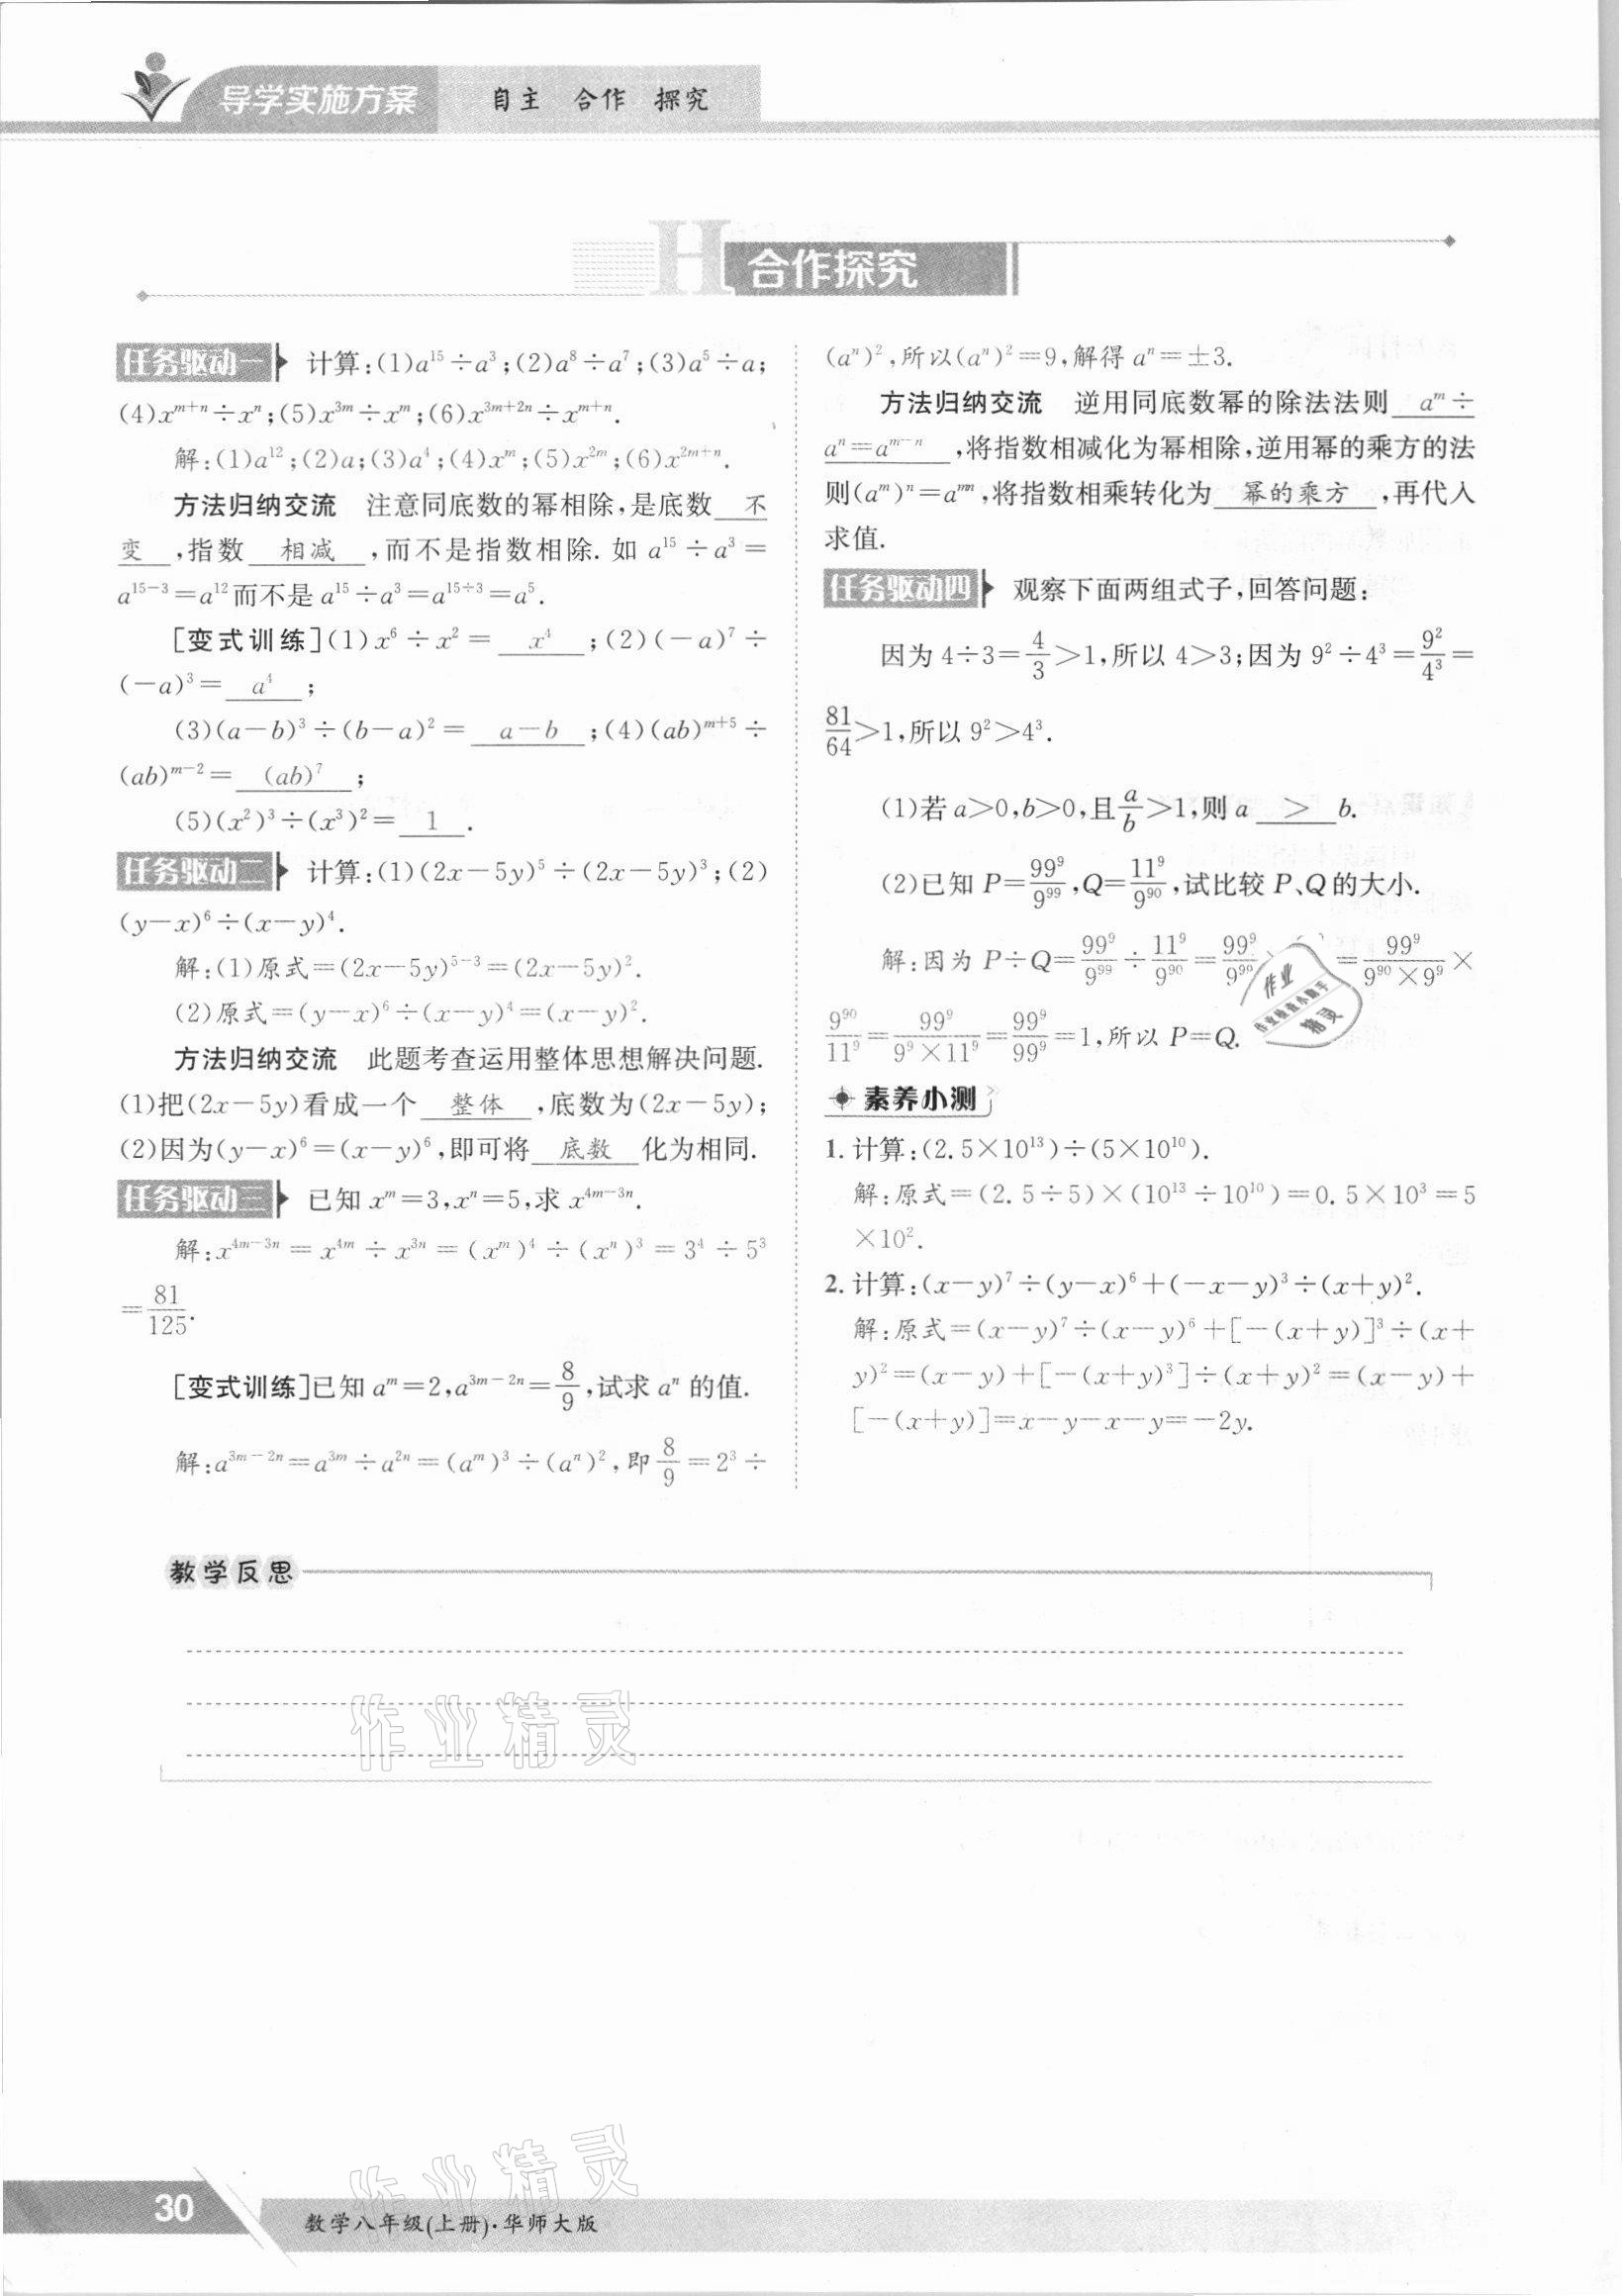 导学实施方案 自主 合作 探究
H 合作探究
任务驱动一 计算:(1)a¹⁵÷a³;(2)a⁸÷a⁷;(3)a⁵÷a;
(4)xᵐ⁺ⁿ÷xⁿ;(5)x³ᵐ÷xᵐ;(6)x³ᵐ⁺²ⁿ÷xᵐ⁺ⁿ.
解:(1)a¹²;(2)a;(3)a⁴;(4)xᵐ;(5)x²ᵐ;(6)x²ᵐ⁺ⁿ.
方法归纳交流 注意同底数的幂相除,是底数 不
变 ,指数 相减 ,而不是指数相除. 如 a¹⁵÷a³=
a¹⁵⁻³=a¹²而不是 a¹⁵÷a³=a^(15÷3)=a⁵.
[变式训练](1)x⁶÷x²= x⁴ ;(2)(-a)⁷÷
(-a)³= a⁴ ;
(3)(a-b)³÷(b-a)²= a-b ;(4)(ab)ᵐ⁺⁵÷
(ab)ᵐ⁻²= (ab)⁷ ;
(5)(x²)³÷(x³)²= 1 .
任务驱动二 计算:(1)(2x-5y)⁵÷(2x-5y)³;(2)
(y-x)⁶÷(x-y)⁴.
解:(1)原式=(2x-5y)⁵⁻³=(2x-5y)².
(2)原式=(y-x)⁶÷(x-y)⁴=(x-y)².
方法归纳交流 此题考查运用整体思想解决问题.
(1)把(2x-5y)看成一个 整体 ,底数为(2x-5y);
(2)因为(y-x)⁶=(x-y)⁶,即可将 底数 化为相同.
任务驱动三 已知 xᵐ=3,xⁿ=5,求 x⁴ᵐ⁻³ⁿ.
解:x⁴ᵐ⁻³ⁿ=x⁴ᵐ÷x³ⁿ=(xᵐ)⁴÷(xⁿ)³=3⁴÷5³
=81/125.
[变式训练]已知 aᵐ=2,a³ᵐ⁻²ⁿ=8/9,试求 aⁿ 的值.
解:a³ᵐ⁻²ⁿ=a³ᵐ÷a²ⁿ=(aᵐ)³÷(aⁿ)²,即8/9=2³÷
(aⁿ)²,所以(aⁿ)²=9,解得 aⁿ=±3.
方法归纳交流 逆用同底数幂的除法法则 aᵐ÷
aⁿ=aᵐ⁻ⁿ ,将指数相减化为幂相除,逆用幂的乘方的法
则(aᵐ)ⁿ=aᵐⁿ,将指数相乘转化为 幂的乘方 ,再代入
求值.
任务驱动四 观察下面两组式子,回答问题:
因为 4÷3=4/3>1,所以 4>3;因为 9²÷4³=9²/4³=
81/64>1,所以 9²>4³.
(1)若 a>0,b>0,且a/b>1,则 a > b.
(2)已知 P=99⁹/9⁹⁹,Q=11⁹/9⁹⁰,试比较 P、Q 的大小.
解:因为 P÷Q=99⁹/9⁹⁹÷11⁹/9⁹⁰=99⁹/9⁹⁹ =99⁹/(9⁹⁰×9⁹)×
9⁹⁰/11⁹=99⁹/(9⁹×11⁹)=99⁹/99⁹=1,所以 P=Q.
素养小测
1. 计算:(2.5×10¹³)÷(5×10¹⁰).
解:原式=(2.5÷5)×(10¹³÷10¹⁰)=0.5×10³=5
×10².
2. 计算:(x-y)⁷÷(y-x)⁶+(-x-y)³÷(x+y)².
解:原式=(x-y)⁷÷(x-y)⁶+[-(x+y)]³÷(x+
y)²=(x-y)+[-(x+y)³]÷(x+y)²=(x-y)+
[-(x+y)]=x-y-x-y=-2y.
教学反思
作业精灵
作业精灵
30
数学八年级(上册)·华师大版